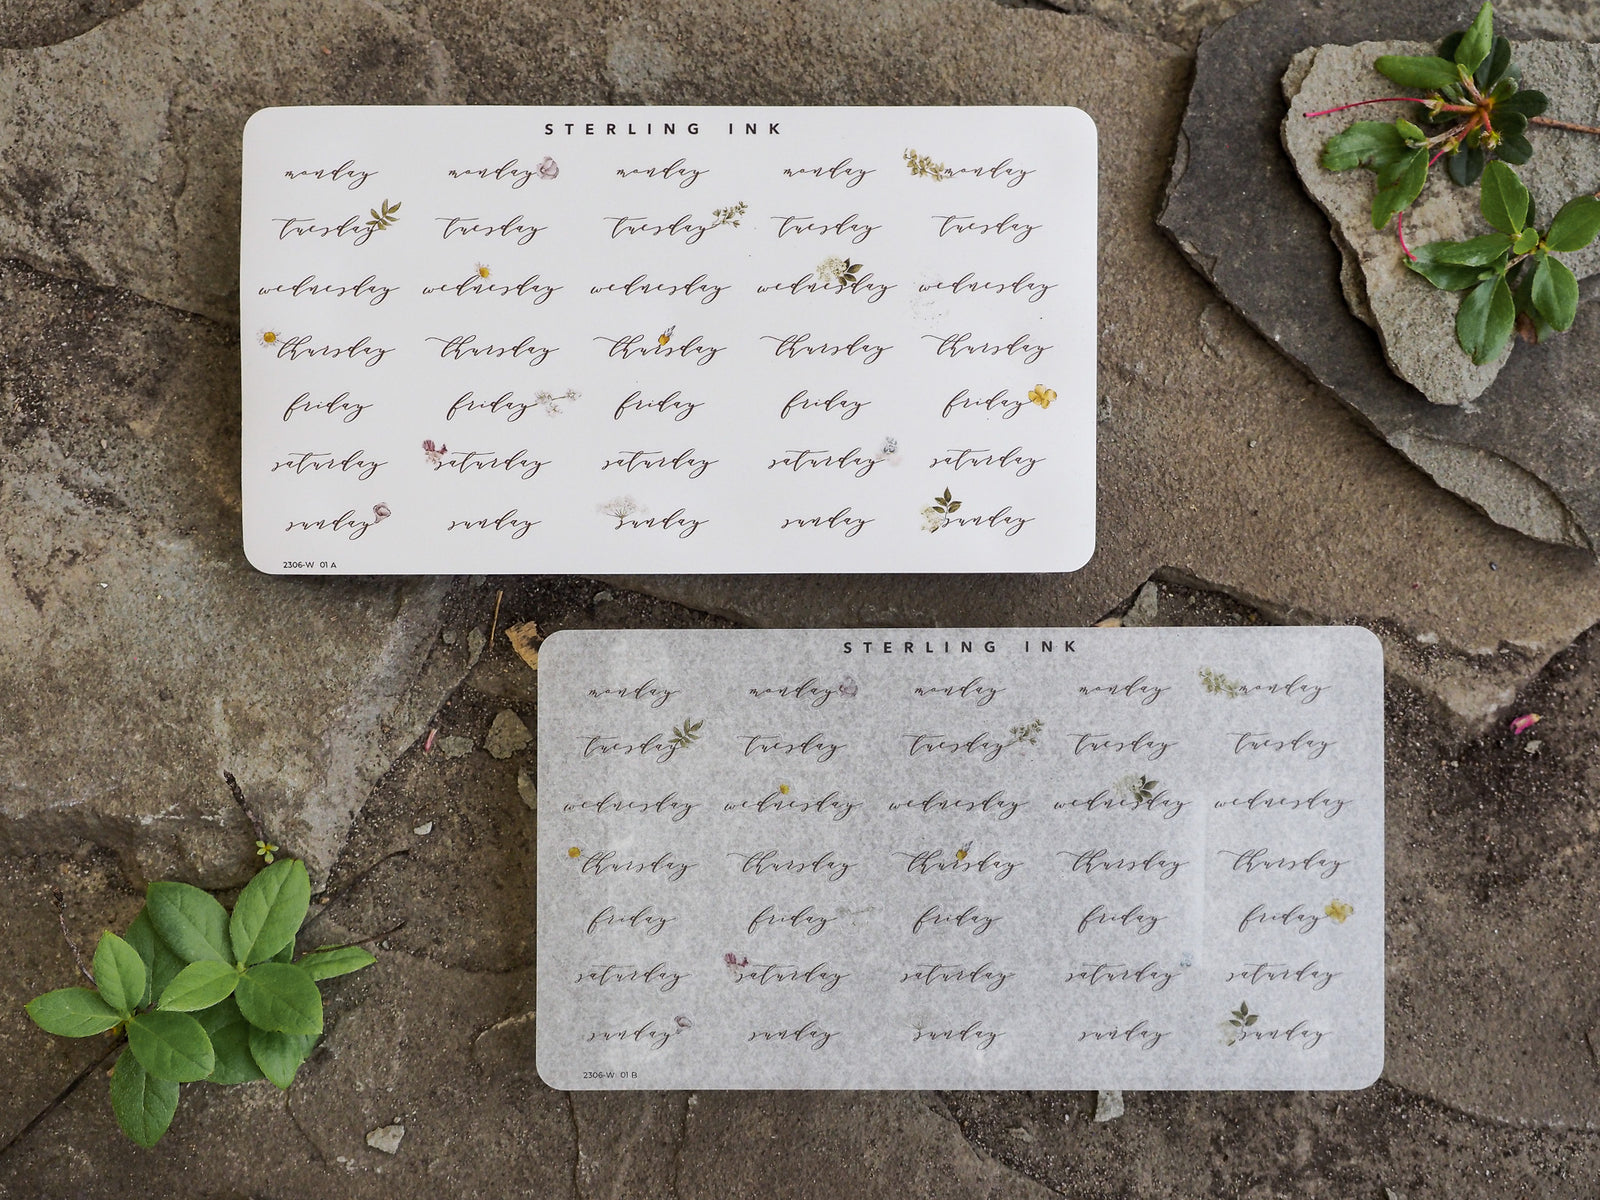 STERLING INK
monday monday monday monday monday
tuesday tuesday tuesday tuesday tuesday
wednesday wednesday wednesday wednesday wednesday
thursday thursday thursday thursday thursday
friday friday friday friday friday
saturday saturday saturday saturday saturday
sunday sunday sunday sunday sunday
2306-W 01 A
STERLING INK
monday monday monday monday monday
tuesday tuesday tuesday tuesday tuesday
wednesday wednesday wednesday wednesday wednesday
thursday thursday thursday thursday thursday
friday friday friday friday friday
saturday saturday saturday saturday saturday
sunday sunday sunday sunday sunday
2306-W 01 B